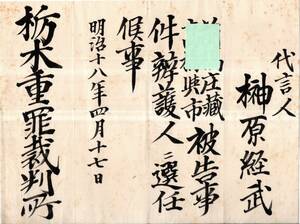 代言人
榊原経武
庄藏
被告事
件辯護人ニ選任
候事
明治十八年四月十七日
栃木重罪裁判所